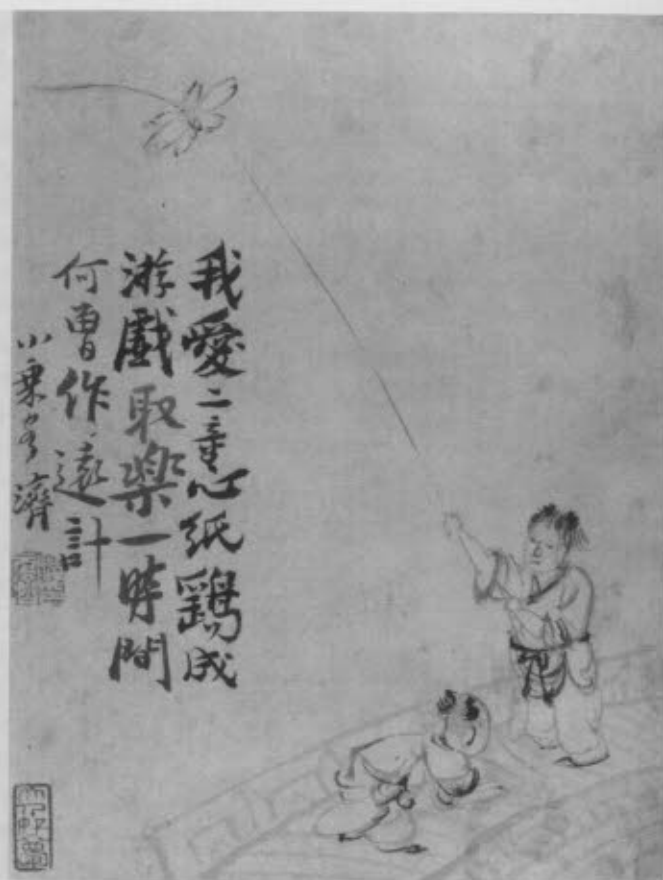 我愛二童心紙鷂成
游戲取樂一時間
何曾作遠計
小乘客濟